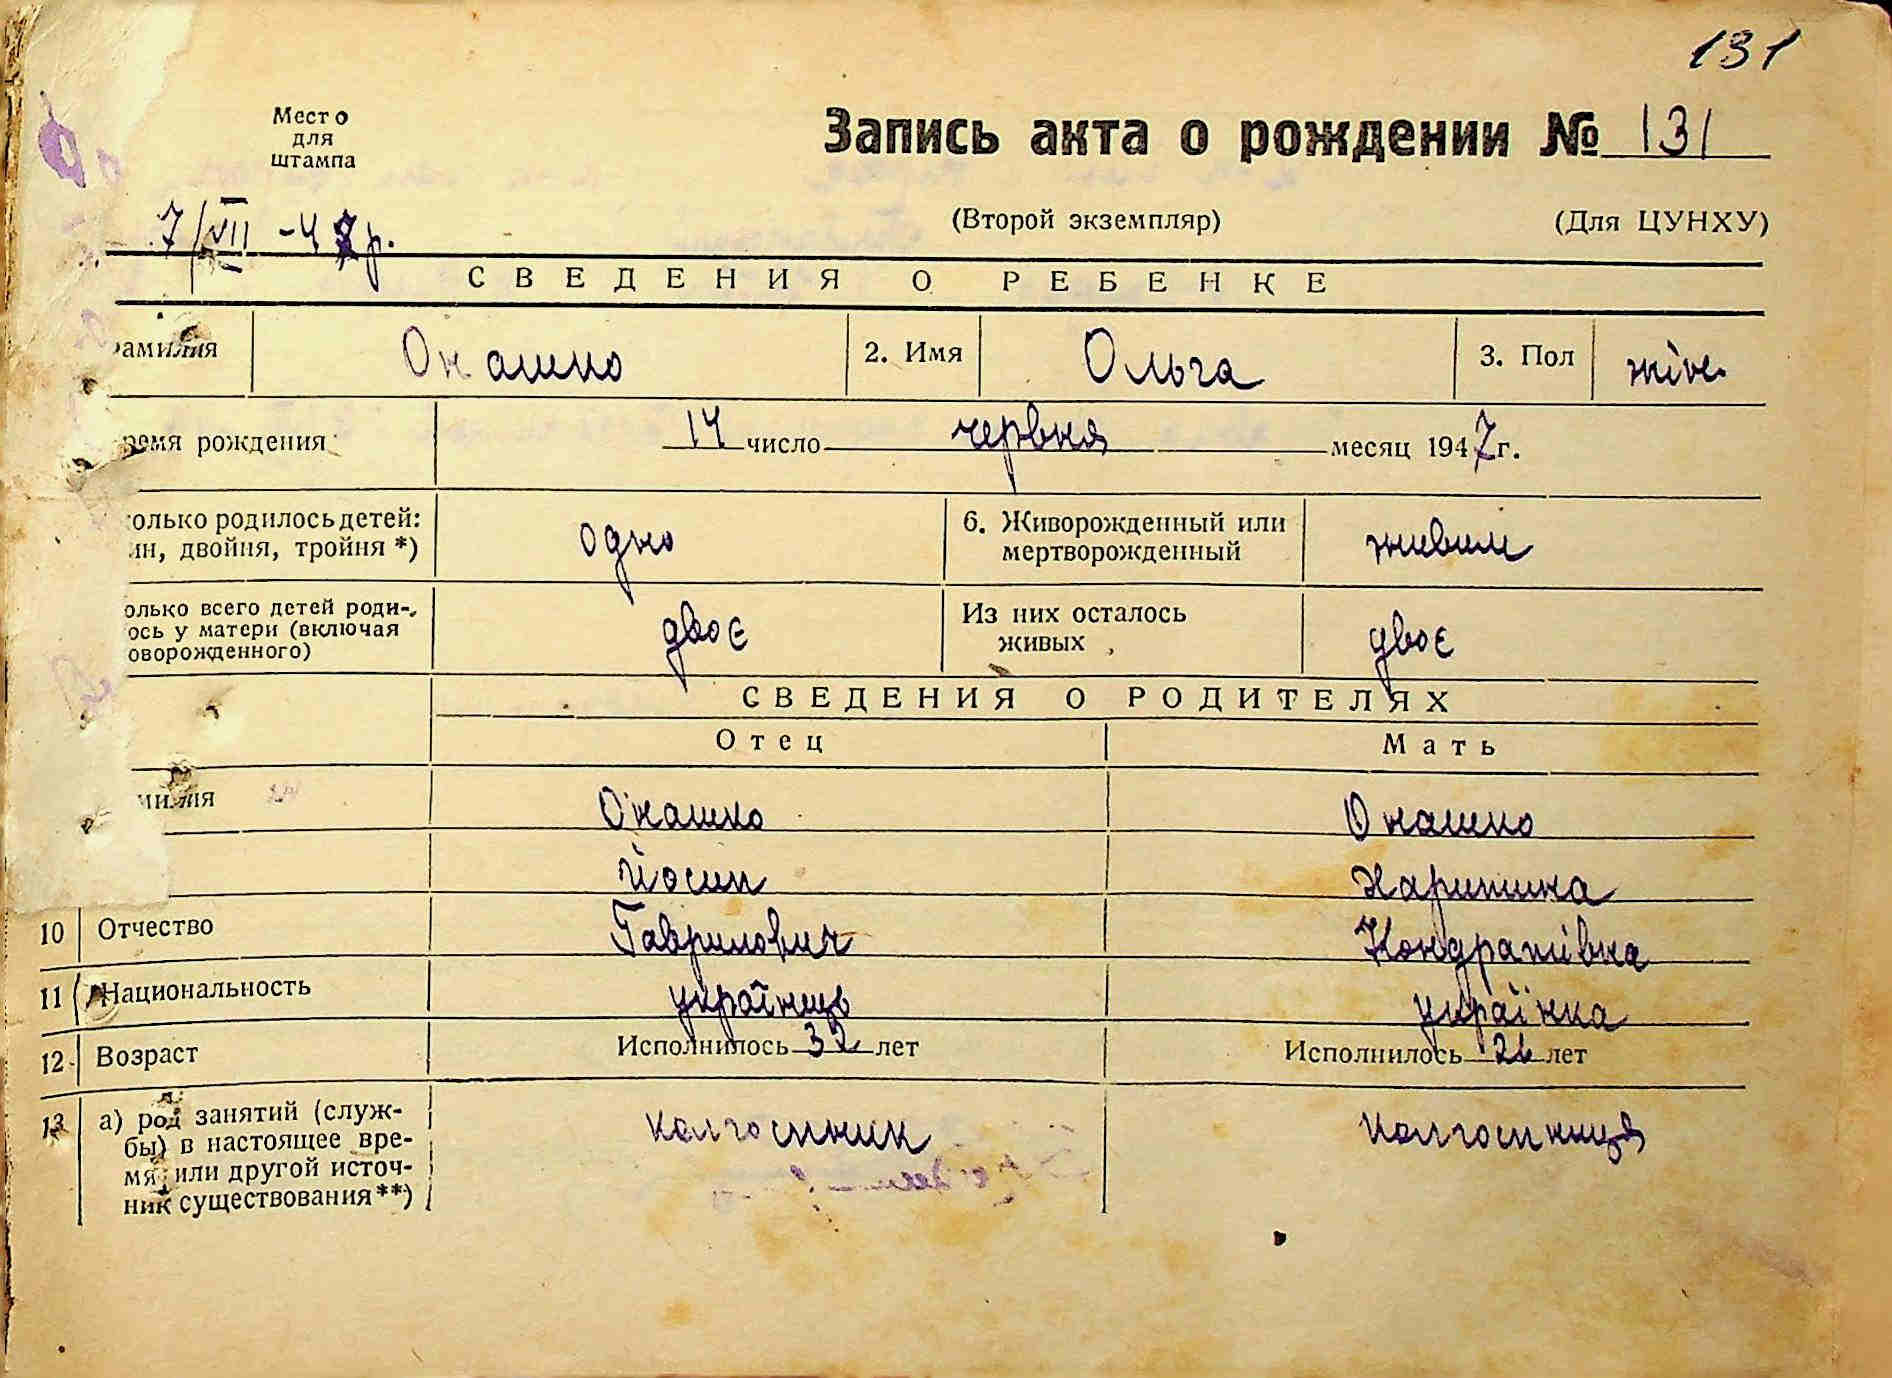 131
Место
для
штампа
Запись акта о рождении № 131
7/VII -47р.
(Второй экземпляр) (Для ЦУНХУ)
СВЕДЕНИЯ О РЕБЕНКЕ
фамилия Онашко 2. Имя Ольга 3. Пол жін.
ремя рождения 14 число червня месяц 1947 г.
колько родилось детей: одно 6. Живорожденный или живим
ин, двойня, тройня *) мертворожденный
олько всего детей роди- двоє Из них осталось двоє
ось у матери (включая живых
оворожденного)
СВЕДЕНИЯ О РОДИТЕЛЯХ
Отец Мать
милия Онашко Онашко
Йосип Харитина
10 Отчество Гаврилович Кондратівна
11 Национальность українць українка
12 Возраст Исполнилось 32 лет Исполнилось лет
13 а) род занятий (служ- колгоспник колгоспниця
бы) в настоящее вре-
мя или другой источ-
ник существования**)